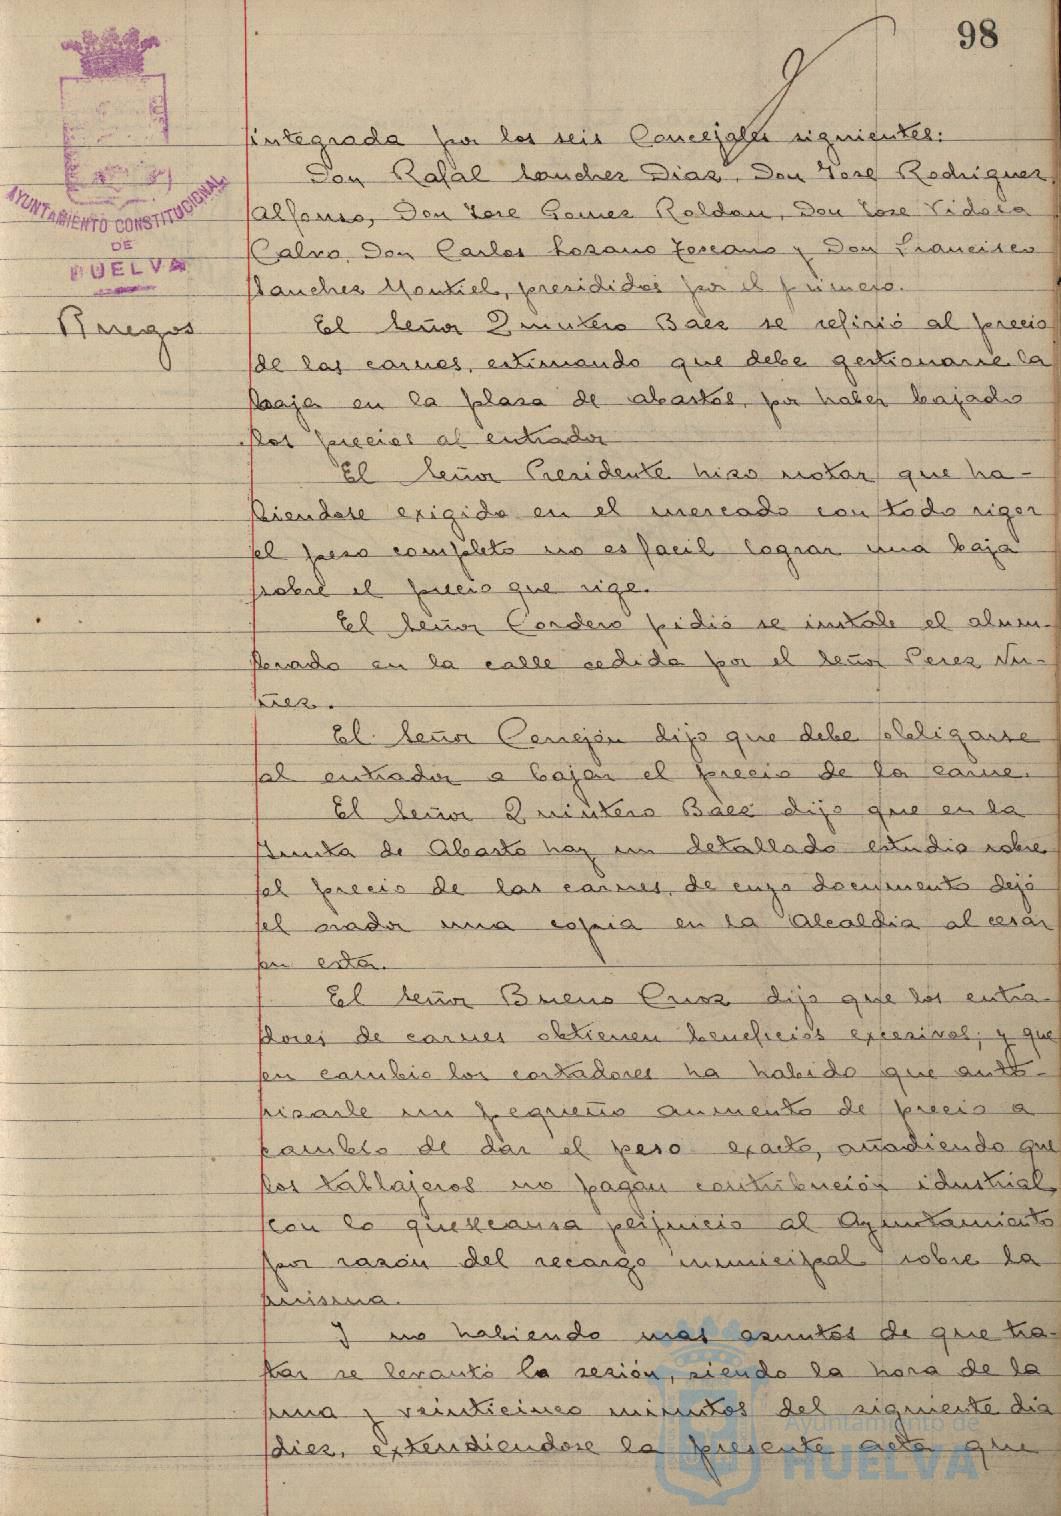 98
AYUNTAMIENTO CONSTITUCIONAL
DE
HUELVA
integrada por los seis Concejales siguientes:
Don Rafal Sanchez Diaz, Don Jose Rodriguez
Alfonso, Don Jose Gomez Roldan, Don Jose Vidosa
Calvo, Don Carlos Lozano Toscano y Don Francisco
Sanchez Montiel, presididos por el primero.
Ruegos
El Señor Quintero Baez se refirió al precio
de las carnes, estimando que debe gestionarse la
baja en la plaza de abastos, por haber bajado
los precios al entrador
El Señor Presidente hizo notar que ha-
biendose exigido en el mercado con todo rigor
el peso completo no es facil lograr una baja
sobre el precio que rige.
El Señor Cordero pidió se instale el alum-
brado en la calle cedida por el Señor Perez Nu-
ñez.
El Señor Cerrejón dijo que debe obligarse
al entrador a bajar el precio de la carne.
El Señor Quintero Baez dijo que en la
Junta de Abasto hay un detallado estudio sobre
el precio de las carnes, de cuyo documento dejó
el orador una copia en la Alcaldia al cesar
en esta.
El Señor Bueno Cruz dijo que los entra-
dores de carnes obtienen beneficios excesivos; y que
en cambio los cortadores ha habido que auto-
rizarle un pequeño aumento de precio a
cambio de dar el peso exacto, añadiendo que
los tablajeros no pagan contribución idustrial,
con lo que se causa perjuicio al Ayuntamiento
por razón del recargo municipal sobre la
misma.
Y no habiendo mas asuntos de que tra-
tar se levantó la sesión, siendo la hora de la
una y veinticinco minutos del siguiente dia
diez, extendiendose la presente acta que
Ayuntamiento de
HUELVA